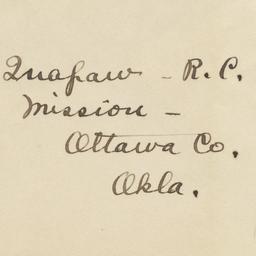 Quapaw - R.C.
Mission -
Ottawa Co.
Okla.